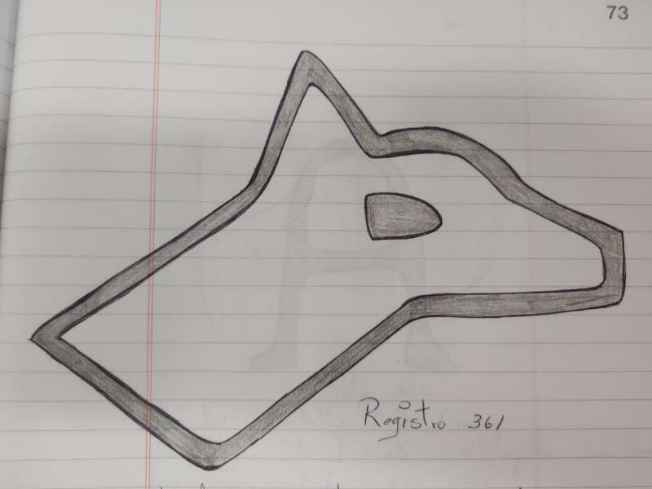 73
Registro 361